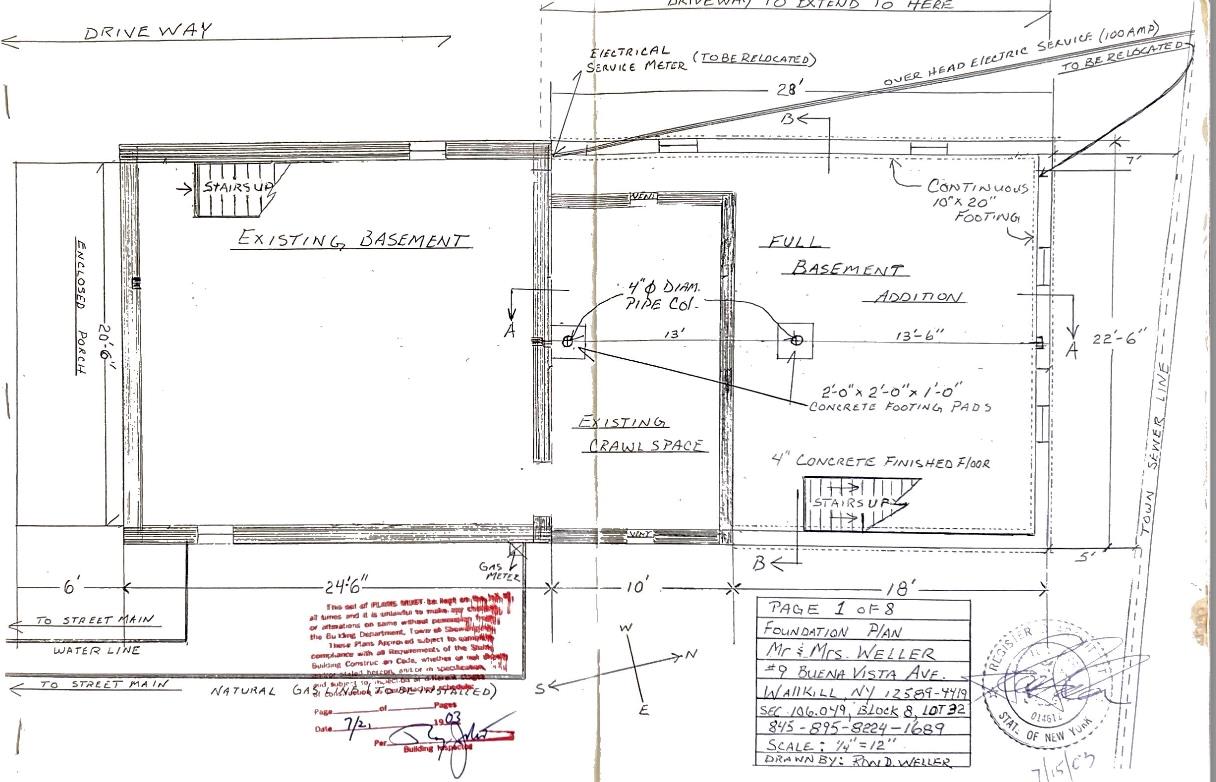 DRIVEWAY TO EXTEND TO HERE
DRIVEWAY
ELECTRICAL
SERVICE METER (TO BE RELOCATED)
OVER HEAD ELECTRIC SERVICE (100 AMP)
TO BE RELOCATED
28'
B
7'
STAIRS UP
VENT
CONTINUOUS
10" X 20"
FOOTING
EXISTING BASEMENT
FULL
BASEMENT
ADDITION
ENCLOSED PORCH
20'-6"
4"Φ DIAM.
PIPE COL.
A
A
13'
13'-6"
22'-6"
2'-0" x 2'-0" x 1'-0"
CONCRETE FOOTING PADS
EXISTING
CRAWL SPACE
TOWN SEWER LINE
4" CONCRETE FINISHED FLOOR
STAIRS UP
VENT
B
5'
GAS
METER
6'
24'6"
10'
18'
TO STREET MAIN
WATER LINE
TO STREET MAIN
NATURAL GAS
INSTALLED)
This set of PLANS MUST be kept on the
all times and it is unlawful to make any
or alterations on same without permission
the Building Department, Town of
These Plans Approved subject to
compliance with all Requirements of the State
Building Construction Code, whether or not
Page of Pages
Date 7/2, 03
Per
Building Inspector
W
N
S
E
PAGE 1 OF 8
FOUNDATION PLAN
Mr & Mrs. WELLER
#9 BUENA VISTA AVE.
WALLKILL, NY 12589-4419
SEC 106.049, BLOCK 8, LOT 32
845-895-8224-1689
SCALE: 1/4" = 12"
DRAWN BY: RON D. WELLER
REGISTER
STAT. OF NEW YORK
7/15/03